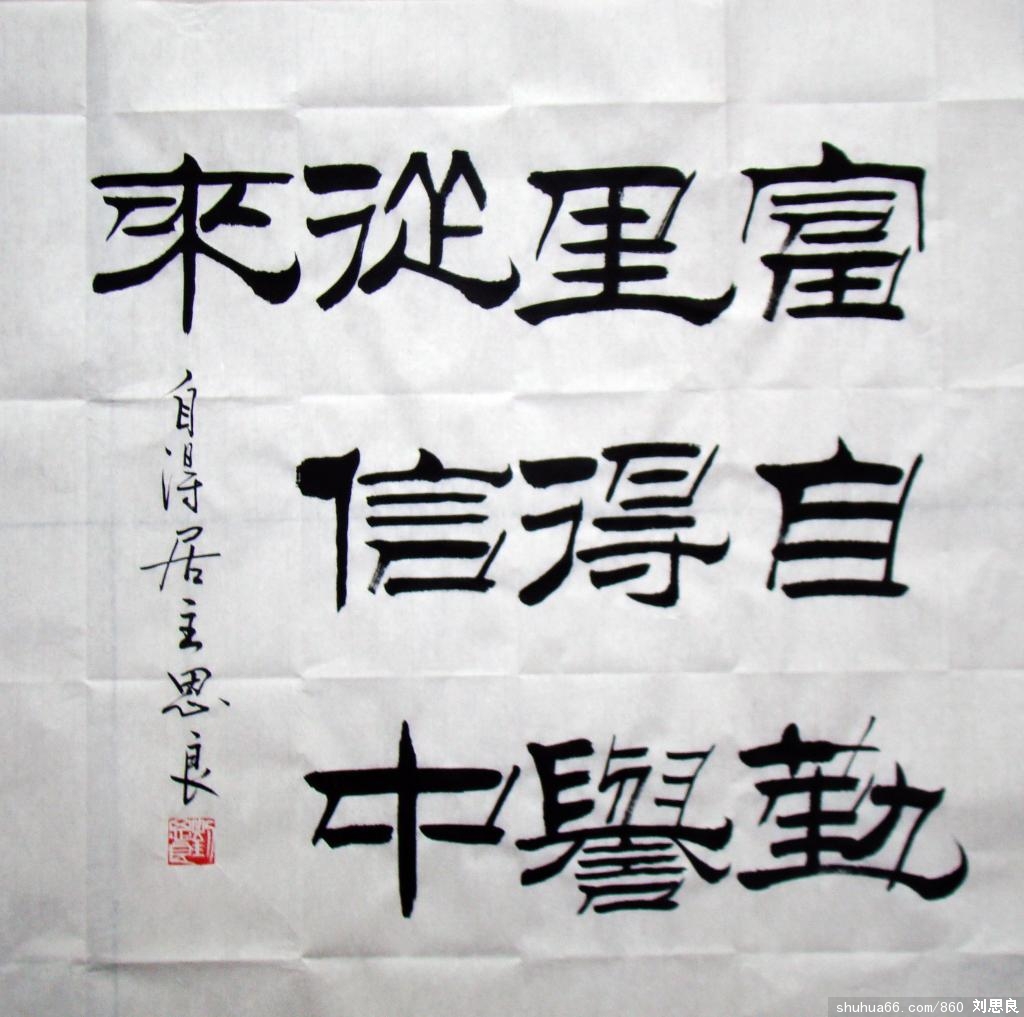 富自勤
里得譽
從信中
來
自得居主思良
劉思良
shuhua66.com/860 刘思良